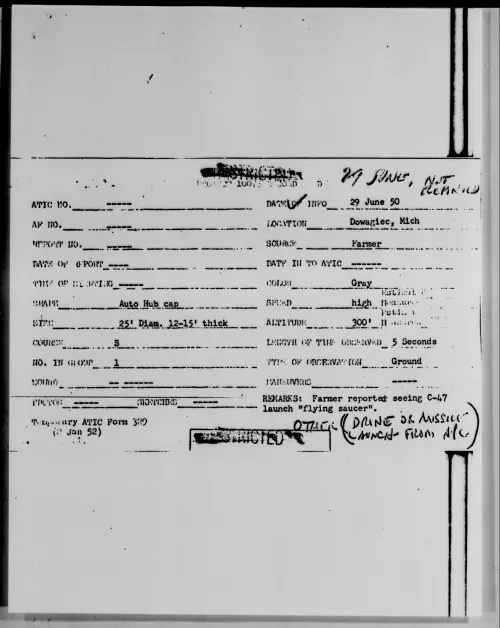 RESTRICTED
29 JUNE, NOT
ATIC NO. -----
DATE OF INFO 29 June 50
AF NO. -----
LOCATION Dowagiec, Mich
REPORT NO. -----
SOURCE Farmer
DATE OF REPORT ----
DATE IN TO ATIC ------
TIME OF SIGHTING -----
COLOR Gray
SHAPE Auto Hub cap
SPEED high
SIZE 25' Diam. 12-15' thick
ALTITUDE 300'
COURSE S
LENGTH OF TIME OBSERVED 5 Seconds
NO. IN GROUP 1
TYPE OF OBSERVATION Ground
SOUND -- ------
MANEUVERS -----
PHOTOS ----- SKETCHES -----
REMARKS: Farmer reported seeing C-47
launch "flying saucer".
Temporary ATIC Form 329
(2 Jan 52)
OTHER (DRONE OR MISSILE
LAUNCH FROM A/C)
RESTRICTED